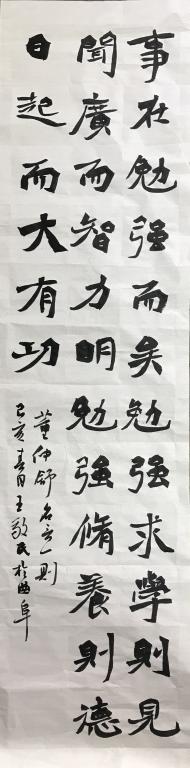 事在勉强而矣勉强求學則見
聞廣而智力明勉強脩養則德
日起而大有功
董仲舒名言一則
己亥春月王敬民於曲阜